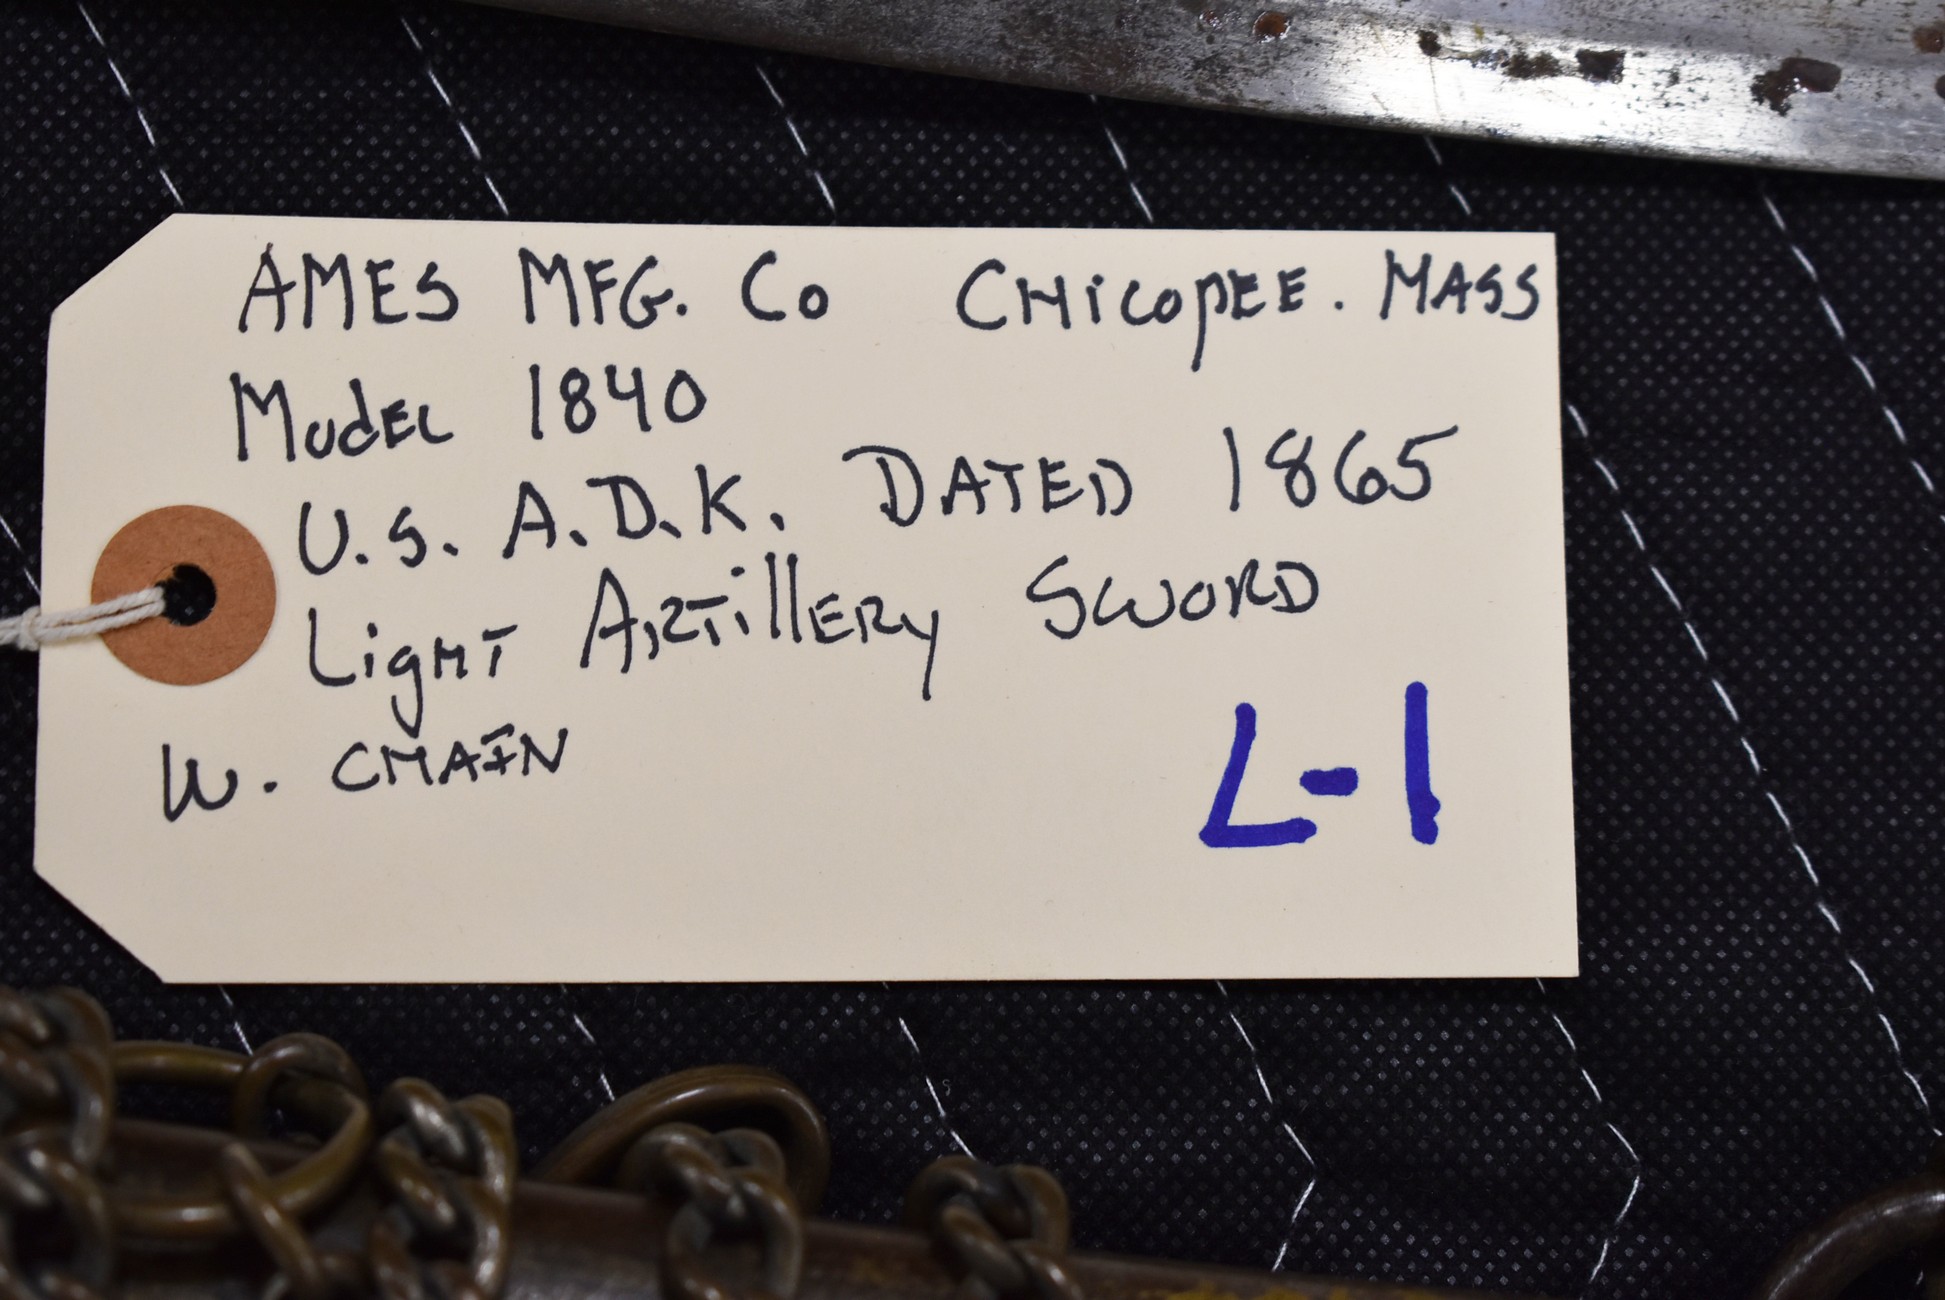 AMES MFG. Co CHicopEE. MASS
ModEL 1840
U.S. A.D.K. DATED 1865
LigHT ARTillERy SWORD
W. CHAIN
L-1